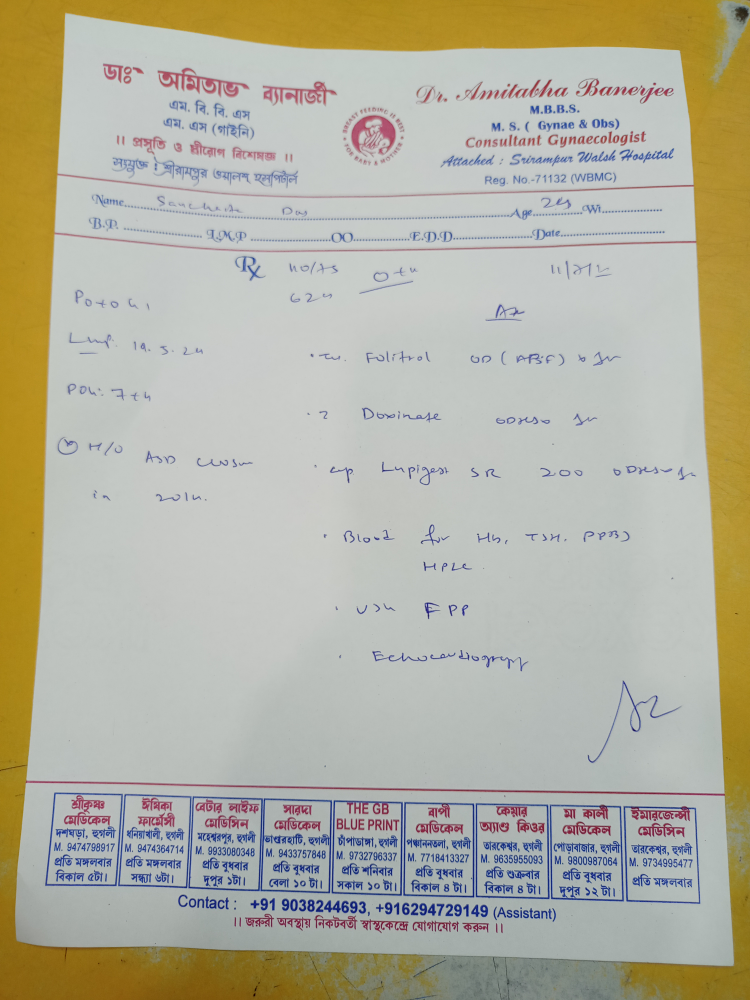 ডাঃ অমিতাভ ব্যানার্জী
এম. বি. বি. এস
এম. এস (গাইনি)
।। প্রসূতি ও স্ত্রীরোগ বিশেষজ্ঞ ।।
সংযুক্ত : শ্রীরামপুর ওয়ালশ হসপিটাল
BREAST FEEDING IS BEST
FOR BABY & MOTHER
Dr. Amitabha Banerjee
M.B.B.S.
M. S. ( Gynae & Obs)
Consultant Gynaecologist
Attached : Srirampur Walsh Hospital
Reg. No.-71132 (WBMC)
Name Das Age 24 Wt.
B.P. L.M.P. OO E.D.D. Date
Rx 110/75
Lmp: 19.5.24
POG: 7+
H/O ASD closure
in 2014.
Folitrol OD
Doxinate
cap Lupigest SR 200
Blood for Hb, TSH, PPBS
HPLC
USG FPP
Echocardiography
শ্রীকৃষ্ণ মেডিকেল
দশঘড়া, হুগলী
M. 9474798917
প্রতি মঙ্গলবার
বিকাল ৫টা।
ঈষিকা ফার্মেসী
ধনিয়াখালী, হুগলী
M. 9474364714
প্রতি মঙ্গলবার
সন্ধ্যা ৬টা।
বেটার লাইফ মেডিসিন
মহেশ্বরপুর, হুগলী
M. 9933080348
প্রতি বুধবার
দুপুর ১টা।
সারদা মেডিকেল
ভান্ডারহাটি, হুগলী
M. 9433757848
প্রতি বুধবার
বেলা ১০ টা।
THE GB
BLUE PRINT
চাঁপাডাঙ্গা, হুগলী
M. 9732796337
প্রতি শনিবার
সকাল ১০ টা।
বাপী মেডিকেল
পঞ্চাননতলা, হুগলী
M. 7718413327
প্রতি বুধবার
বিকাল ৪ টা।
কেয়ার অ্যান্ড কিওর
তারকেশ্বর, হুগলী
M. 9635955093
প্রতি শুক্রবার
বিকাল ৪ টা।
মা কালী মেডিকেল
পোড়াবাজার, হুগলী
M. 9800987064
প্রতি বুধবার
দুপুর ১২ টা।
ইমারজেন্সী মেডিসিন
তারকেশ্বর, হুগলী
M. 9734995477
প্রতি মঙ্গলবার
Contact : +91 9038244693, +916294729149 (Assistant)
।। জরুরী অবস্থায় নিকটবর্তী স্বাস্থ্যকেন্দ্রে যোগাযোগ করুন ।।